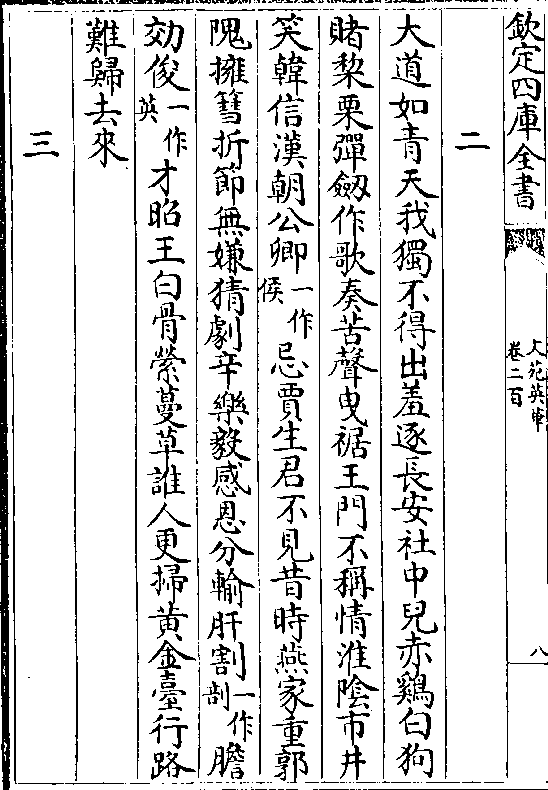 欽定四庫全書
文苑英華
卷二百
八
二
大道如青天我獨不得出羞逐長安社中兒赤鷄白狗
賭棃栗彈劔作歌奏苦聲曳裾王門不稱情淮陰市井
笑韓信漢朝公卿一作侯忌賈生君不見昔時燕家重郭
隗擁篲折節無嫌猜劇辛樂毅感恩分輸肝割一作剖膽
効俊一作英才昭王白骨縈蔓草誰人更掃黄金臺行路
難歸去來
三